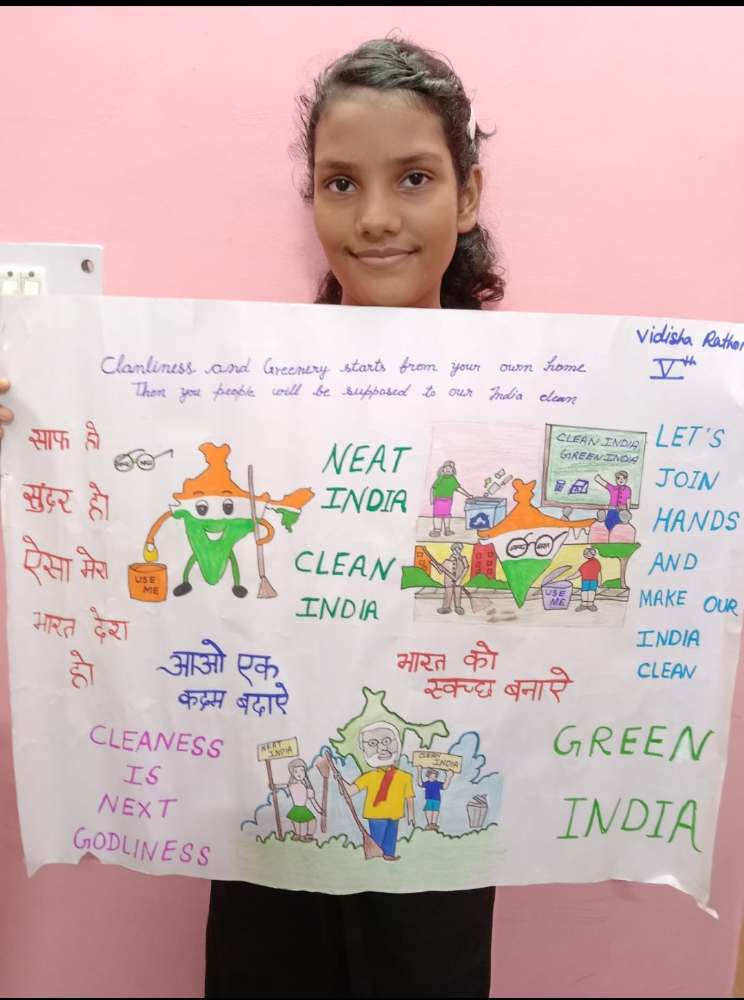 Vidisha Rathor
Vth
Clanliness and Greenery starts from your own home
Then you people will be supposed to our India clean
साफ हो
सुंदर हो
ऐसा मेरा
भारत देश
हो
USE
ME
NEAT
INDIA
CLEAN
INDIA
CLEAN INDIA
GREEN INDIA
USE
ME
LET'S
JOIN
HANDS
AND
MAKE OUR
INDIA
CLEAN
आओ एक
कदम बढाऐ
भारत को
स्वच्छ बनाऐ
CLEANESS
IS
NEXT
GODLINESS
NEAT
INDIA
CLEAN
INDIA
GREEN
INDIA